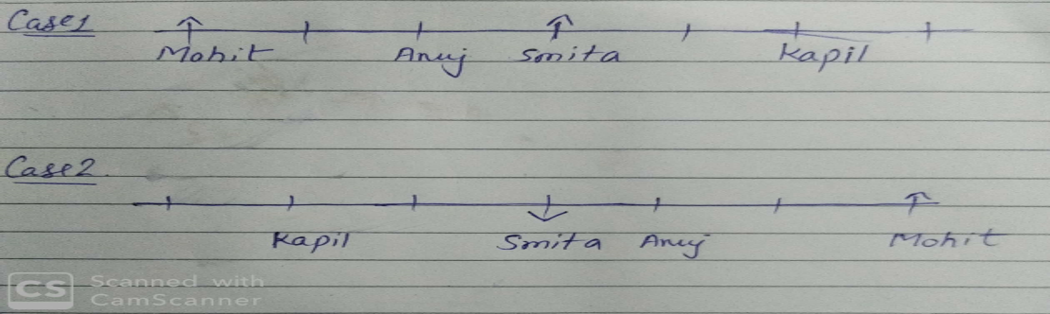 Case1
Mohit Anuj Smita Kapil
Case2
Kapil Smita Anuj Mohit
CS Scanned with
CamScanner